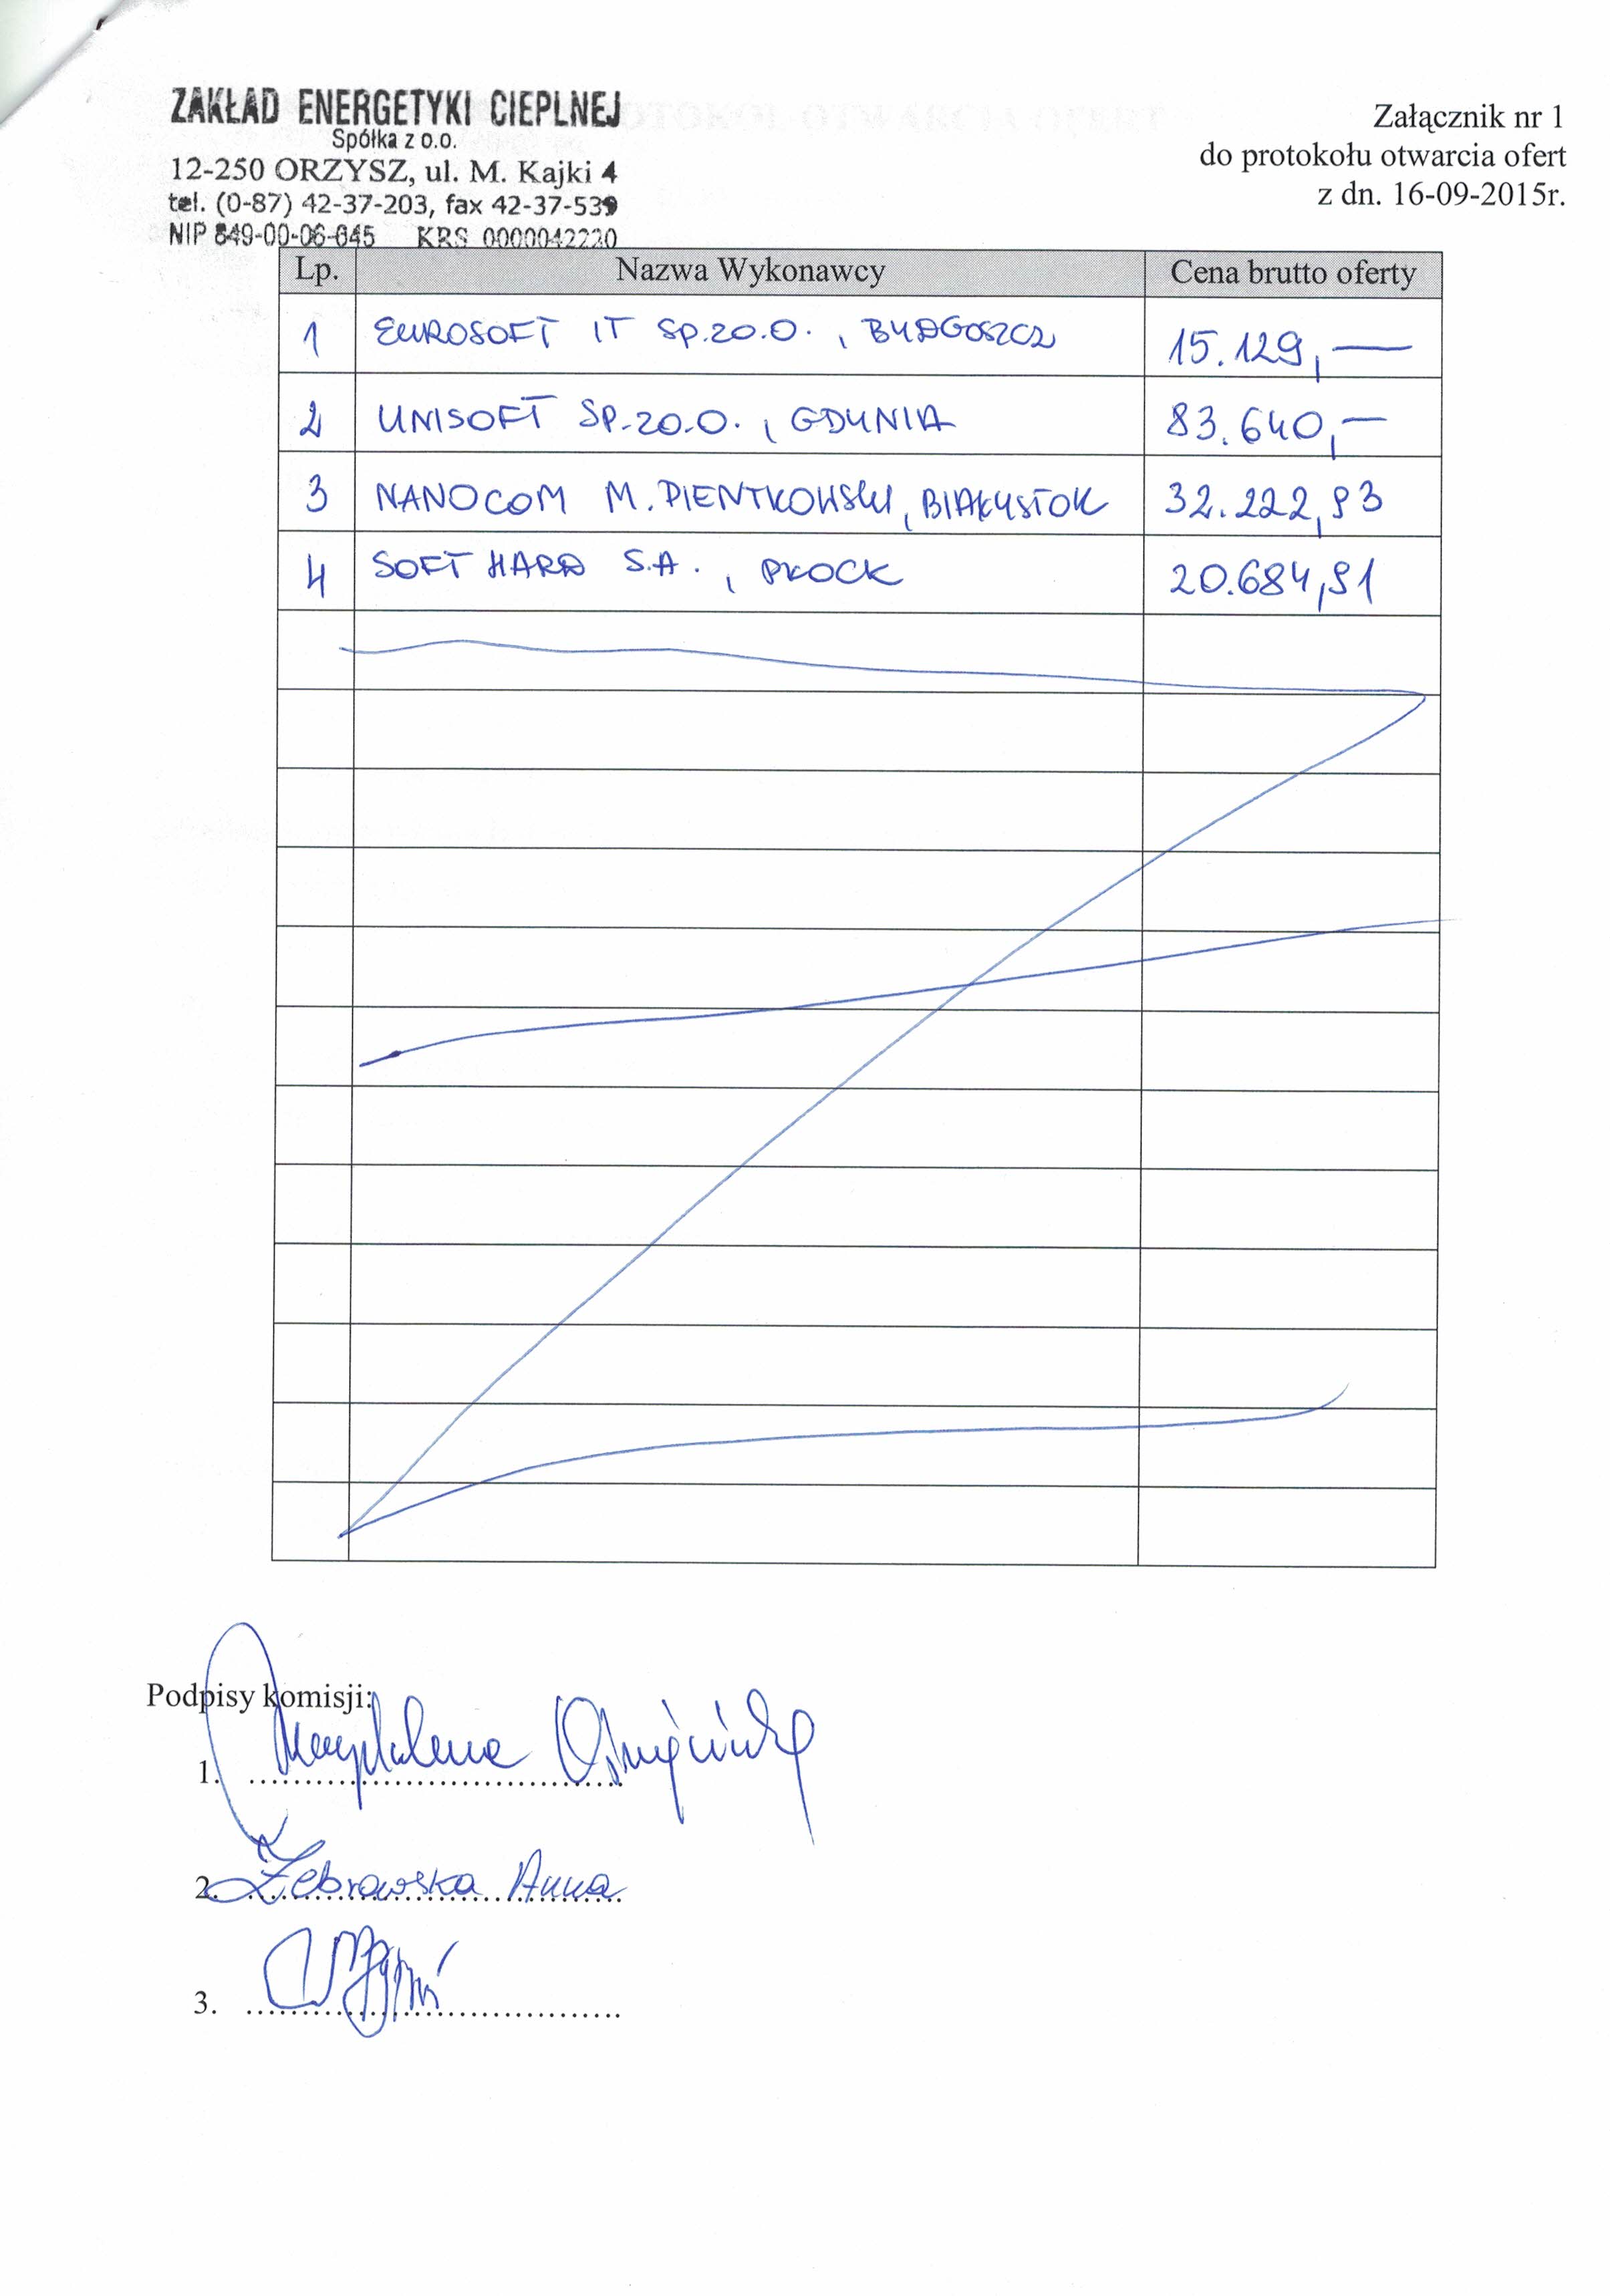 ZAKŁAD ENERGETYKI CIEPLNEJ
Spółka z o.o.
12-250 ORZYSZ, ul. M. Kajki 4
tel. (0-87) 42-37-203, fax 42-37-539
NIP 849-00-06-045 KRS 0000042220
Załącznik nr 1
do protokołu otwarcia ofert
z dn. 16-09-2015r.
Lp. Nazwa Wykonawcy Cena brutto oferty
1 EUROSOFT IT SP. ZO.O. , BYDGOSZCZ 15.129,—
2 UNISOFT SP. ZO.O. , GDYNIA 83.640,—
3 NANOCOM M. PIENTKOWSKI, BIAŁYSTOK 32.222,93
4 SOFT HARD S.A. , PŁOCK 20.684,91
Podpisy komisji:
1. Magdalena
2. Żebrowska Anna
3.